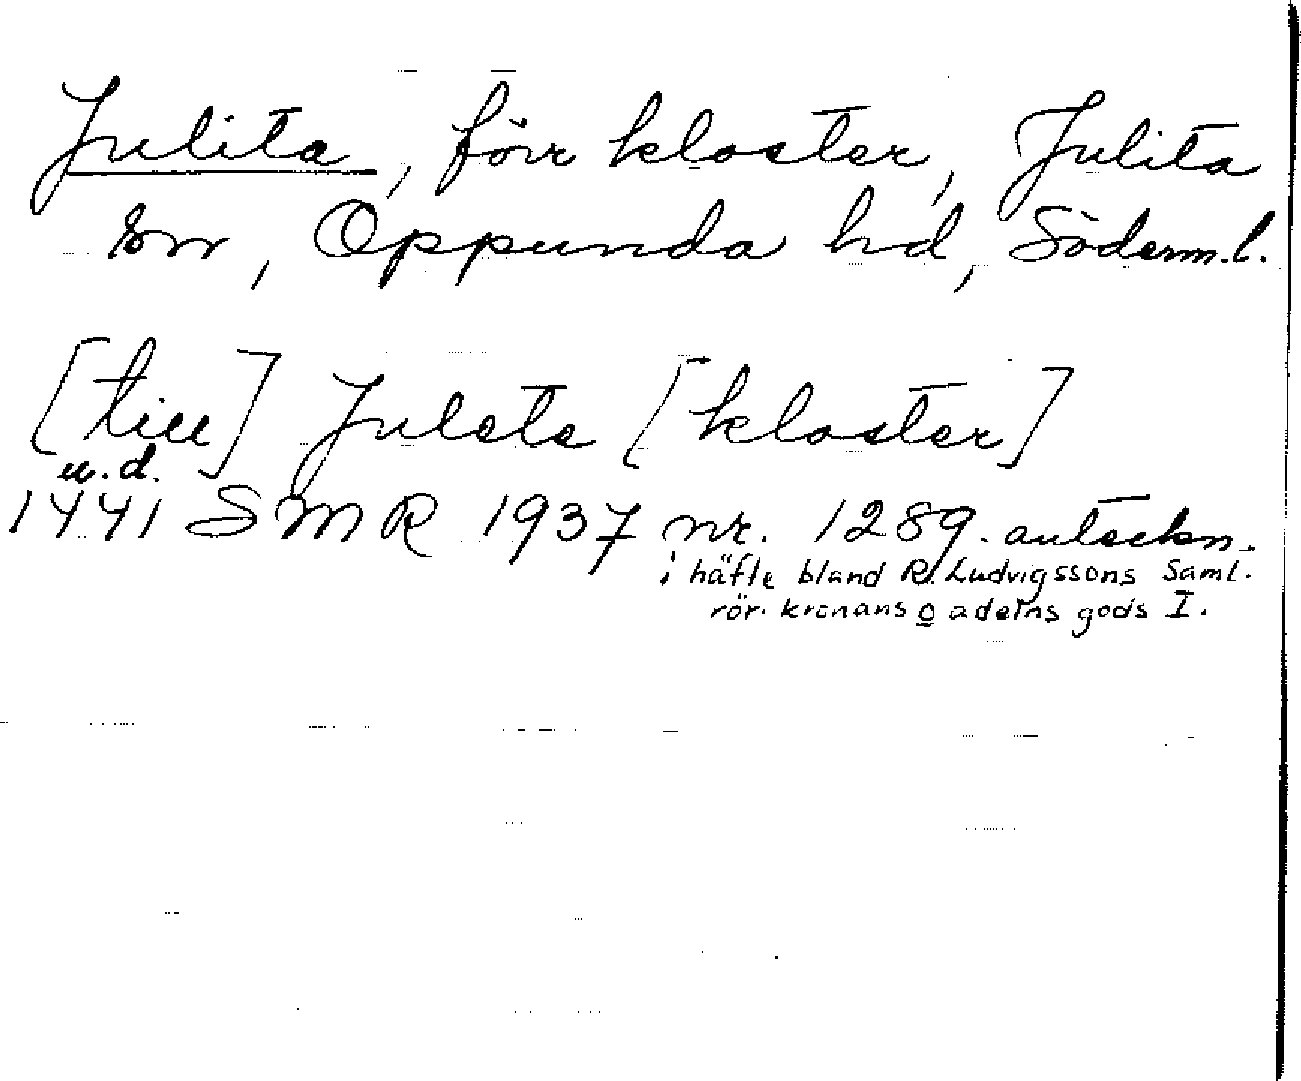 Julita, förr kloster, Julita
sn, Oppunda hd, Söderm.l.
[till] Julete [kloster]
u.d.
1441 SMR 1937 nr. 1289. anteckn.
i häfte bland R. Ludvigssons Saml.
rör. kronans o adelns gods I.